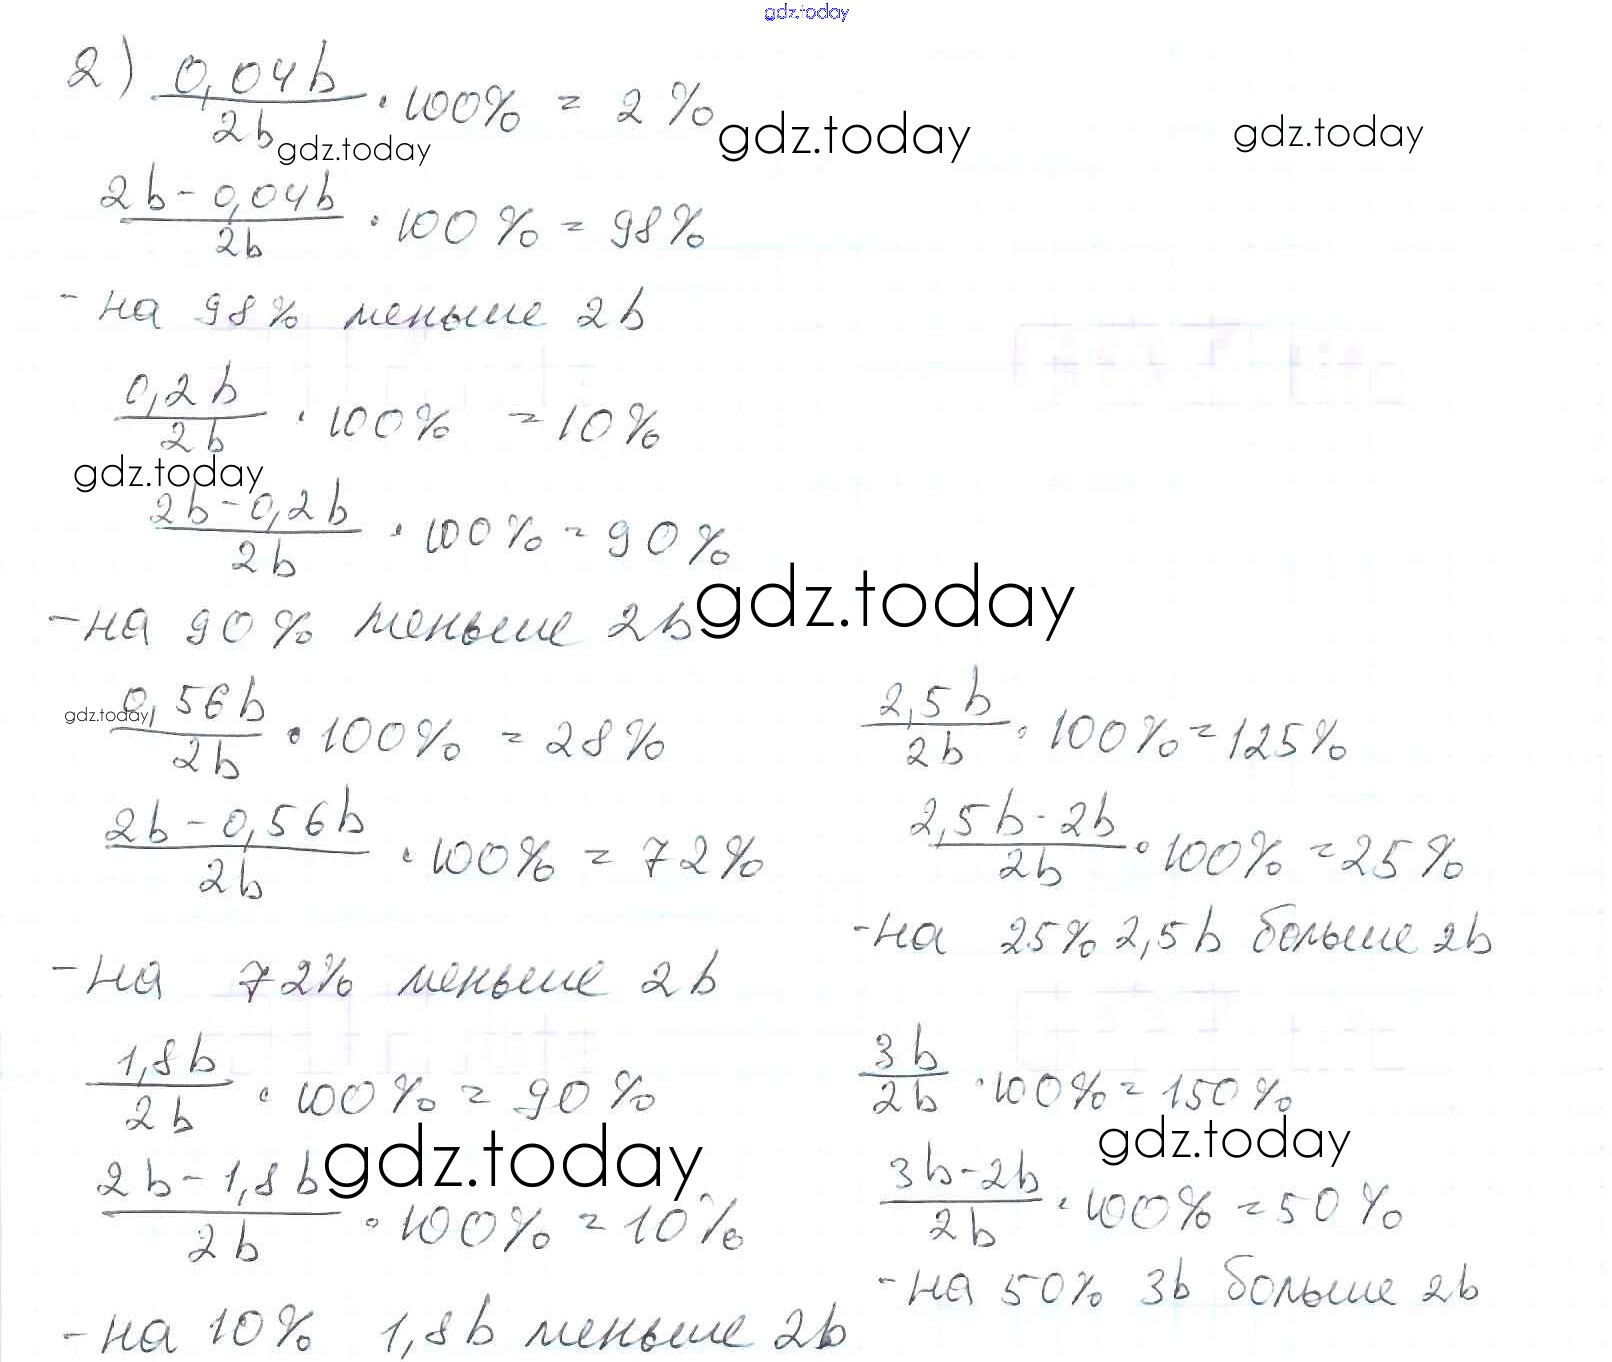 gdz.today
2) 0,04b / 2b · 100% = 2%
gdz.today gdz.today gdz.today
2b - 0,04b / 2b · 100% = 98%
- на 98% меньше 2b
0,2b / 2b · 100% = 10%
gdz.today
2b - 0,2b / 2b · 100% = 90%
gdz.today
- на 90% меньше 2b
0,56b / 2b · 100% = 28%
gdz.today
2b - 0,56b / 2b · 100% = 72%
- на 72% меньше 2b
1,8b / 2b · 100% = 90%
gdz.today
2b - 1,8b / 2b · 100% = 10%
- на 10% 1,8b меньше 2b
2,5b / 2b · 100% = 125%
2,5b - 2b / 2b · 100% = 25%
- на 25% 2,5b больше 2b
3b / 2b · 100% = 150%
gdz.today
3b - 2b / 2b · 100% = 50%
- на 50% 3b больше 2b